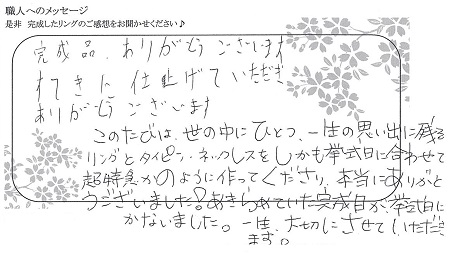 職人へのメッセージ
是非 完成したリングのご感想をお聞かせください♪
完成品、ありがとうございます
すてきに仕上げていただき
ありがとうございます
このたびは、世の中にひとつ、一生の思い出に残る
リングとタイピン・ネックレスをしかも挙式日に合わせて
超特急かのように作ってくださり、本当にありがと
うございました!あきらめていた完成日が、挙式日に
かないました。一生、大切にさせていただき
ます。